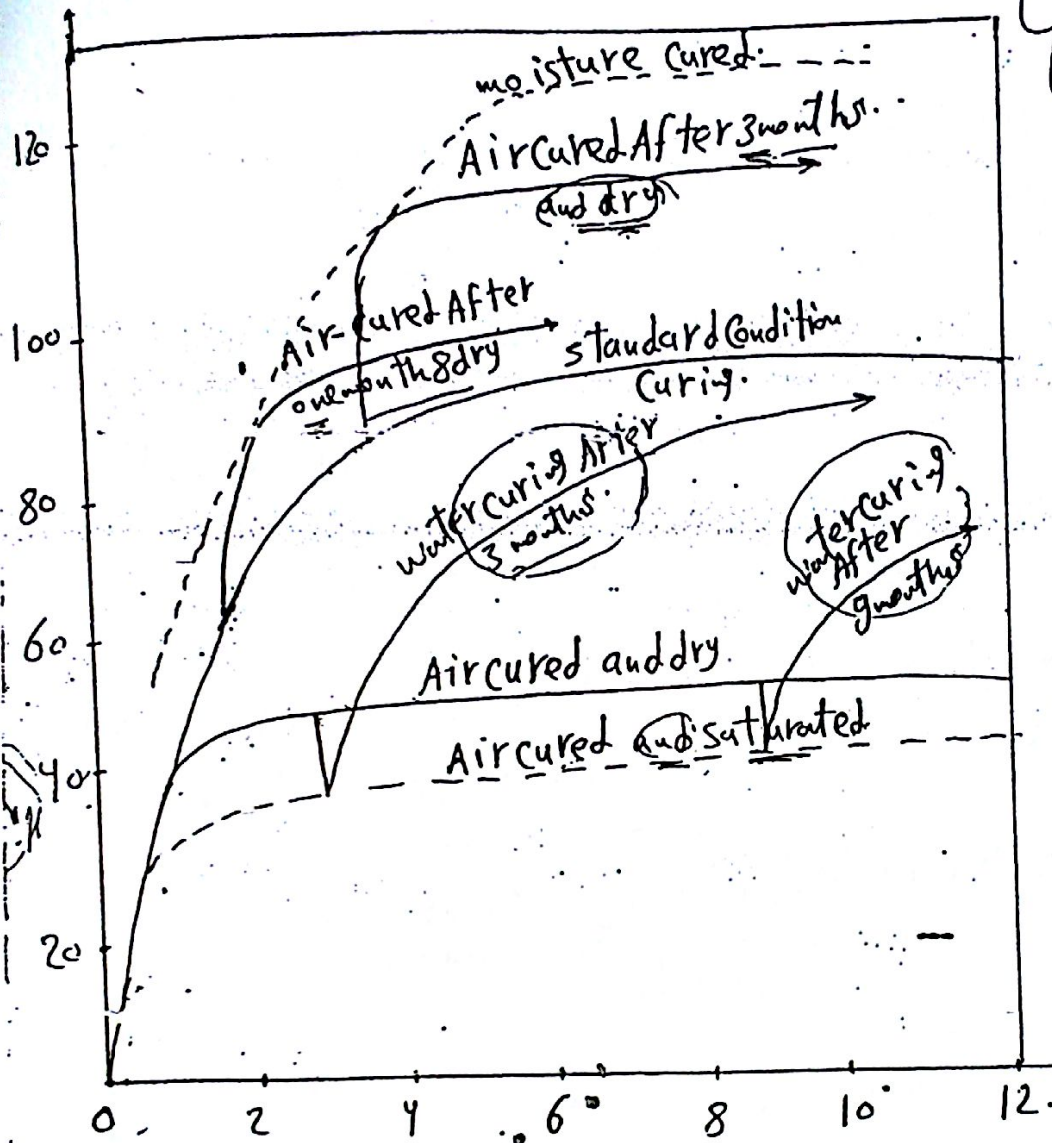 moisture cured.
120
Air Cured After 3 months.
and dry
Air-cured After
one month & dry
100
standard Condition
Curing.
water curing After
3 months.
80
water curing
After
9 months
60
Air cured and dry.
Air cured and saturated
40
20
0 2 4 6 8 10 12